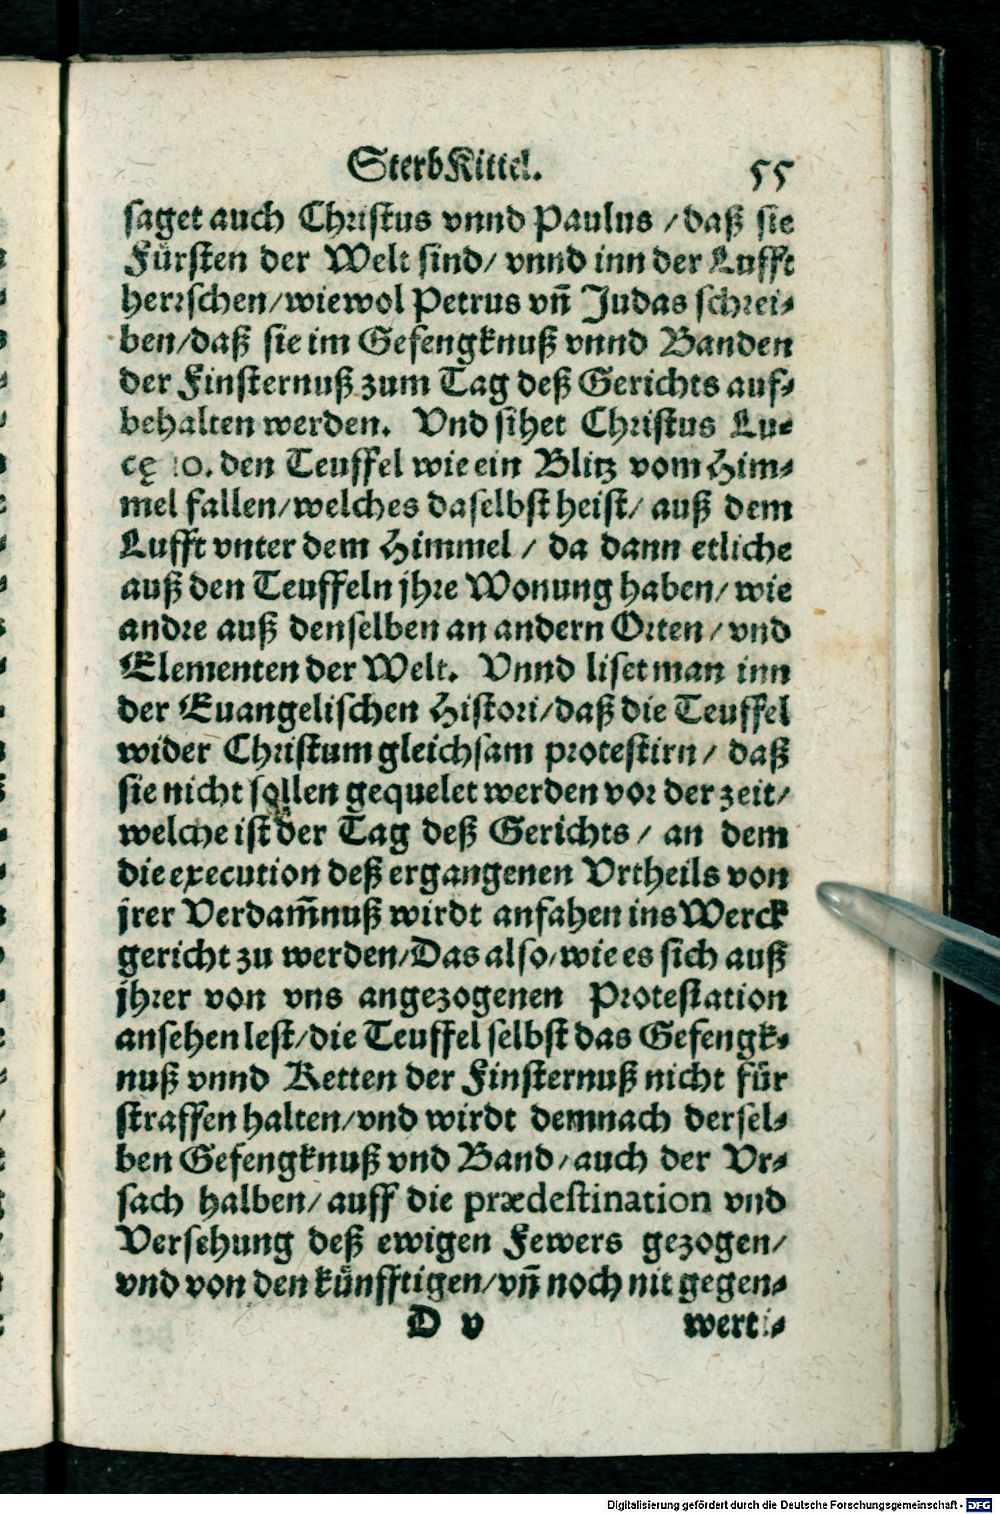 SterbKittel. 55
saget auch Christus vnnd Paulus / daß sie
Fürsten der Welt sind / vnnd inn der Lufft
herrschen / wiewol Petrus vñ Judas schrei-
ben / daß sie im Gefengknuß vnnd Banden
der Finsternuß zum Tag deß Gerichts auf-
behalten werden. Vnd sihet Christus Lu-
cę 10. den Teuffel wie ein Blitz vom Him-
mel fallen / welches daselbst heist / auß dem
Lufft vnter dem Himmel / da dann etliche
auß den Teuffeln jhre Wonung haben / wie
andre auß denselben an andern Orten / vnd
Elementen der Welt. Vnnd liset man inn
der Euangelischen Histori / daß die Teuffel
wider Christum gleichsam protestirn / daß
sie nicht sollen gequelet werden vor der zeit /
welche ist der Tag deß Gerichts / an dem
die execution deß ergangenen Vrtheils von
jrer Verdam̃nuß wirdt anfahen ins Werck
gericht zu werden / Das also / wie es sich auß
jhrer von vns angezogenen Protestation
ansehen lest / die Teuffel selbst das Gefengk-
nuß vnnd Ketten der Finsternuß nicht für
straffen halten / vnd wirdt demnach dersel-
ben Gefengknuß vnd Band / auch der Vr-
sach halben / auff die prædestination vnd
Versehung deß ewigen Fewers gezogen /
vnd von den künfftigen / vñ noch nit gegen-
D v werti-
Digitalisierung gefördert durch die Deutsche Forschungsgemeinschaft - DFG